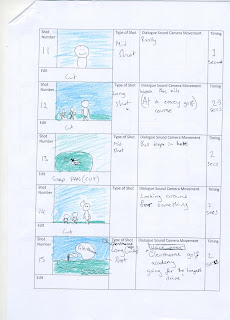 Shot Number
Type of Shot
Dialogue Sound Camera Movement
Timing
11
Mid
Shot
Family
1
Second
Edit
Cut
Shot Number
Type of Shot
Dialogue Sound Camera Movement
Timing
12
Long
Shot
(At a crazy golf)
course
2-3
Edit
Cut
Shot Number
Type of Shot
Dialogue Sound Camera Movement
Timing
13
Mid
Shot
in hole
2
Secs
Edit
Snap PAN (CUT)
Shot Number
Type of Shot
Dialogue Sound Camera Movement
Timing
14
Looking around
for something
Edit
Cut
Shot Number
Type of Shot
Dialogue Sound Camera Movement
Timing
15
Shot
Cleethorpe golf
academy
going for the longest
drive
Edit